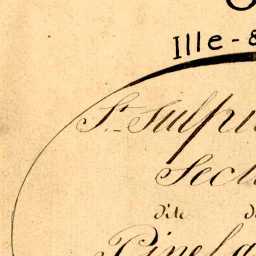 Ille-&
St Sulpi
Sect
dite d
Pinel a